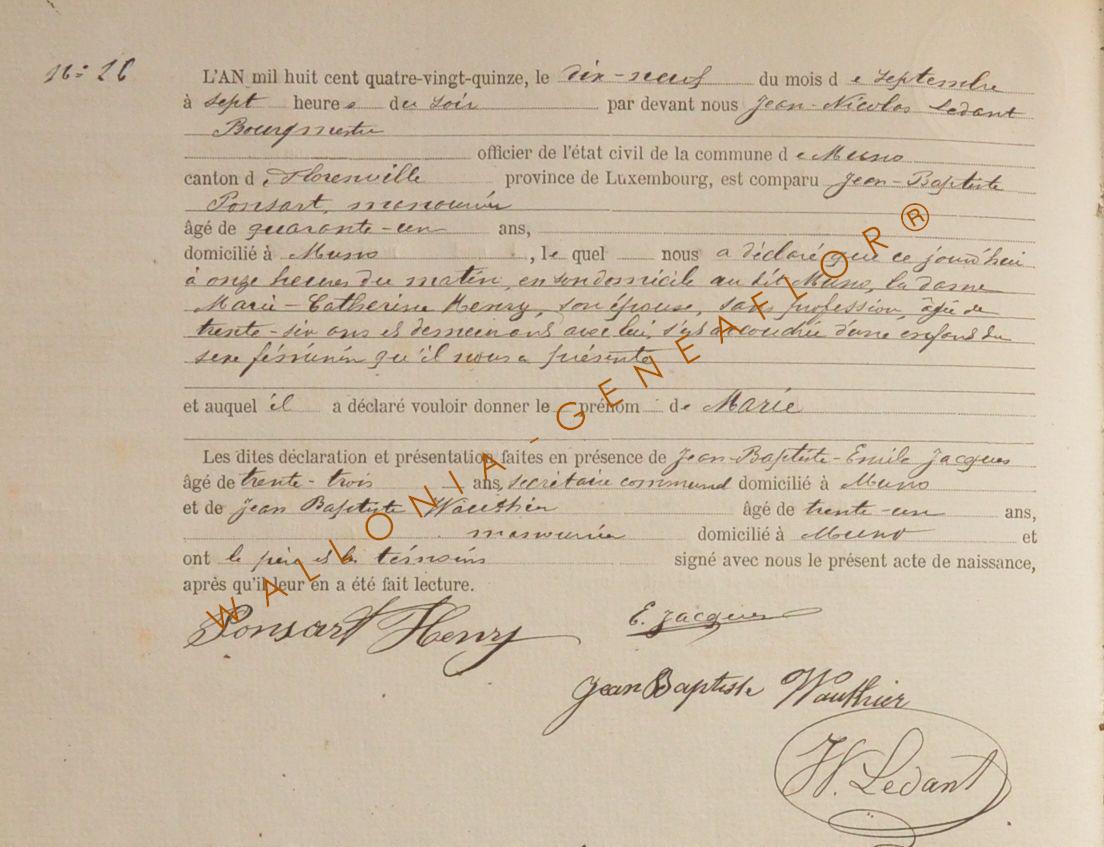 N° 26
L'AN mil huit cent quatre-vingt-quinze, le dix-neuf du mois de septembre
à sept heures du soir par devant nous Jean-Nicolas Ledant
Bourgmestre
officier de l'état civil de la commune de Muno
canton de Florenville province de Luxembourg, est comparu Jean-Baptiste
Ponsart, manouvrier
âgé de quarante-un ans,
domicilié à Muno, le quel nous a déclaré que ce jourd'hui
à onze heures du matin, en son domicile au dit Muno, la dame
Marie-Catherine Henry, son épouse, san profession, âgée de
trente-six ans et demeurant avec lui, s'est accouchée d'une enfant du
sexe féminin qu'il nous a présenté
et auquel il a déclaré vouloir donner le prénom de Marie
Les dites déclaration et présentation faites en présence de Jean-Baptiste-Emile Jacques
âgé de trente-trois ans, secrétaire communal domicilié à Muno
et de Jean Baptiste Wauthier âgé de trente-un ans,
manouvrier domicilié à Muno et
ont le père et les témoins signé avec nous le présent acte de naissance,
après qu'il leur en a été fait lecture.
Ponsart Henry E. Jacques
Jean Baptiste Wauthier
N. Ledant
WALLONIA-GENEAFLOR®